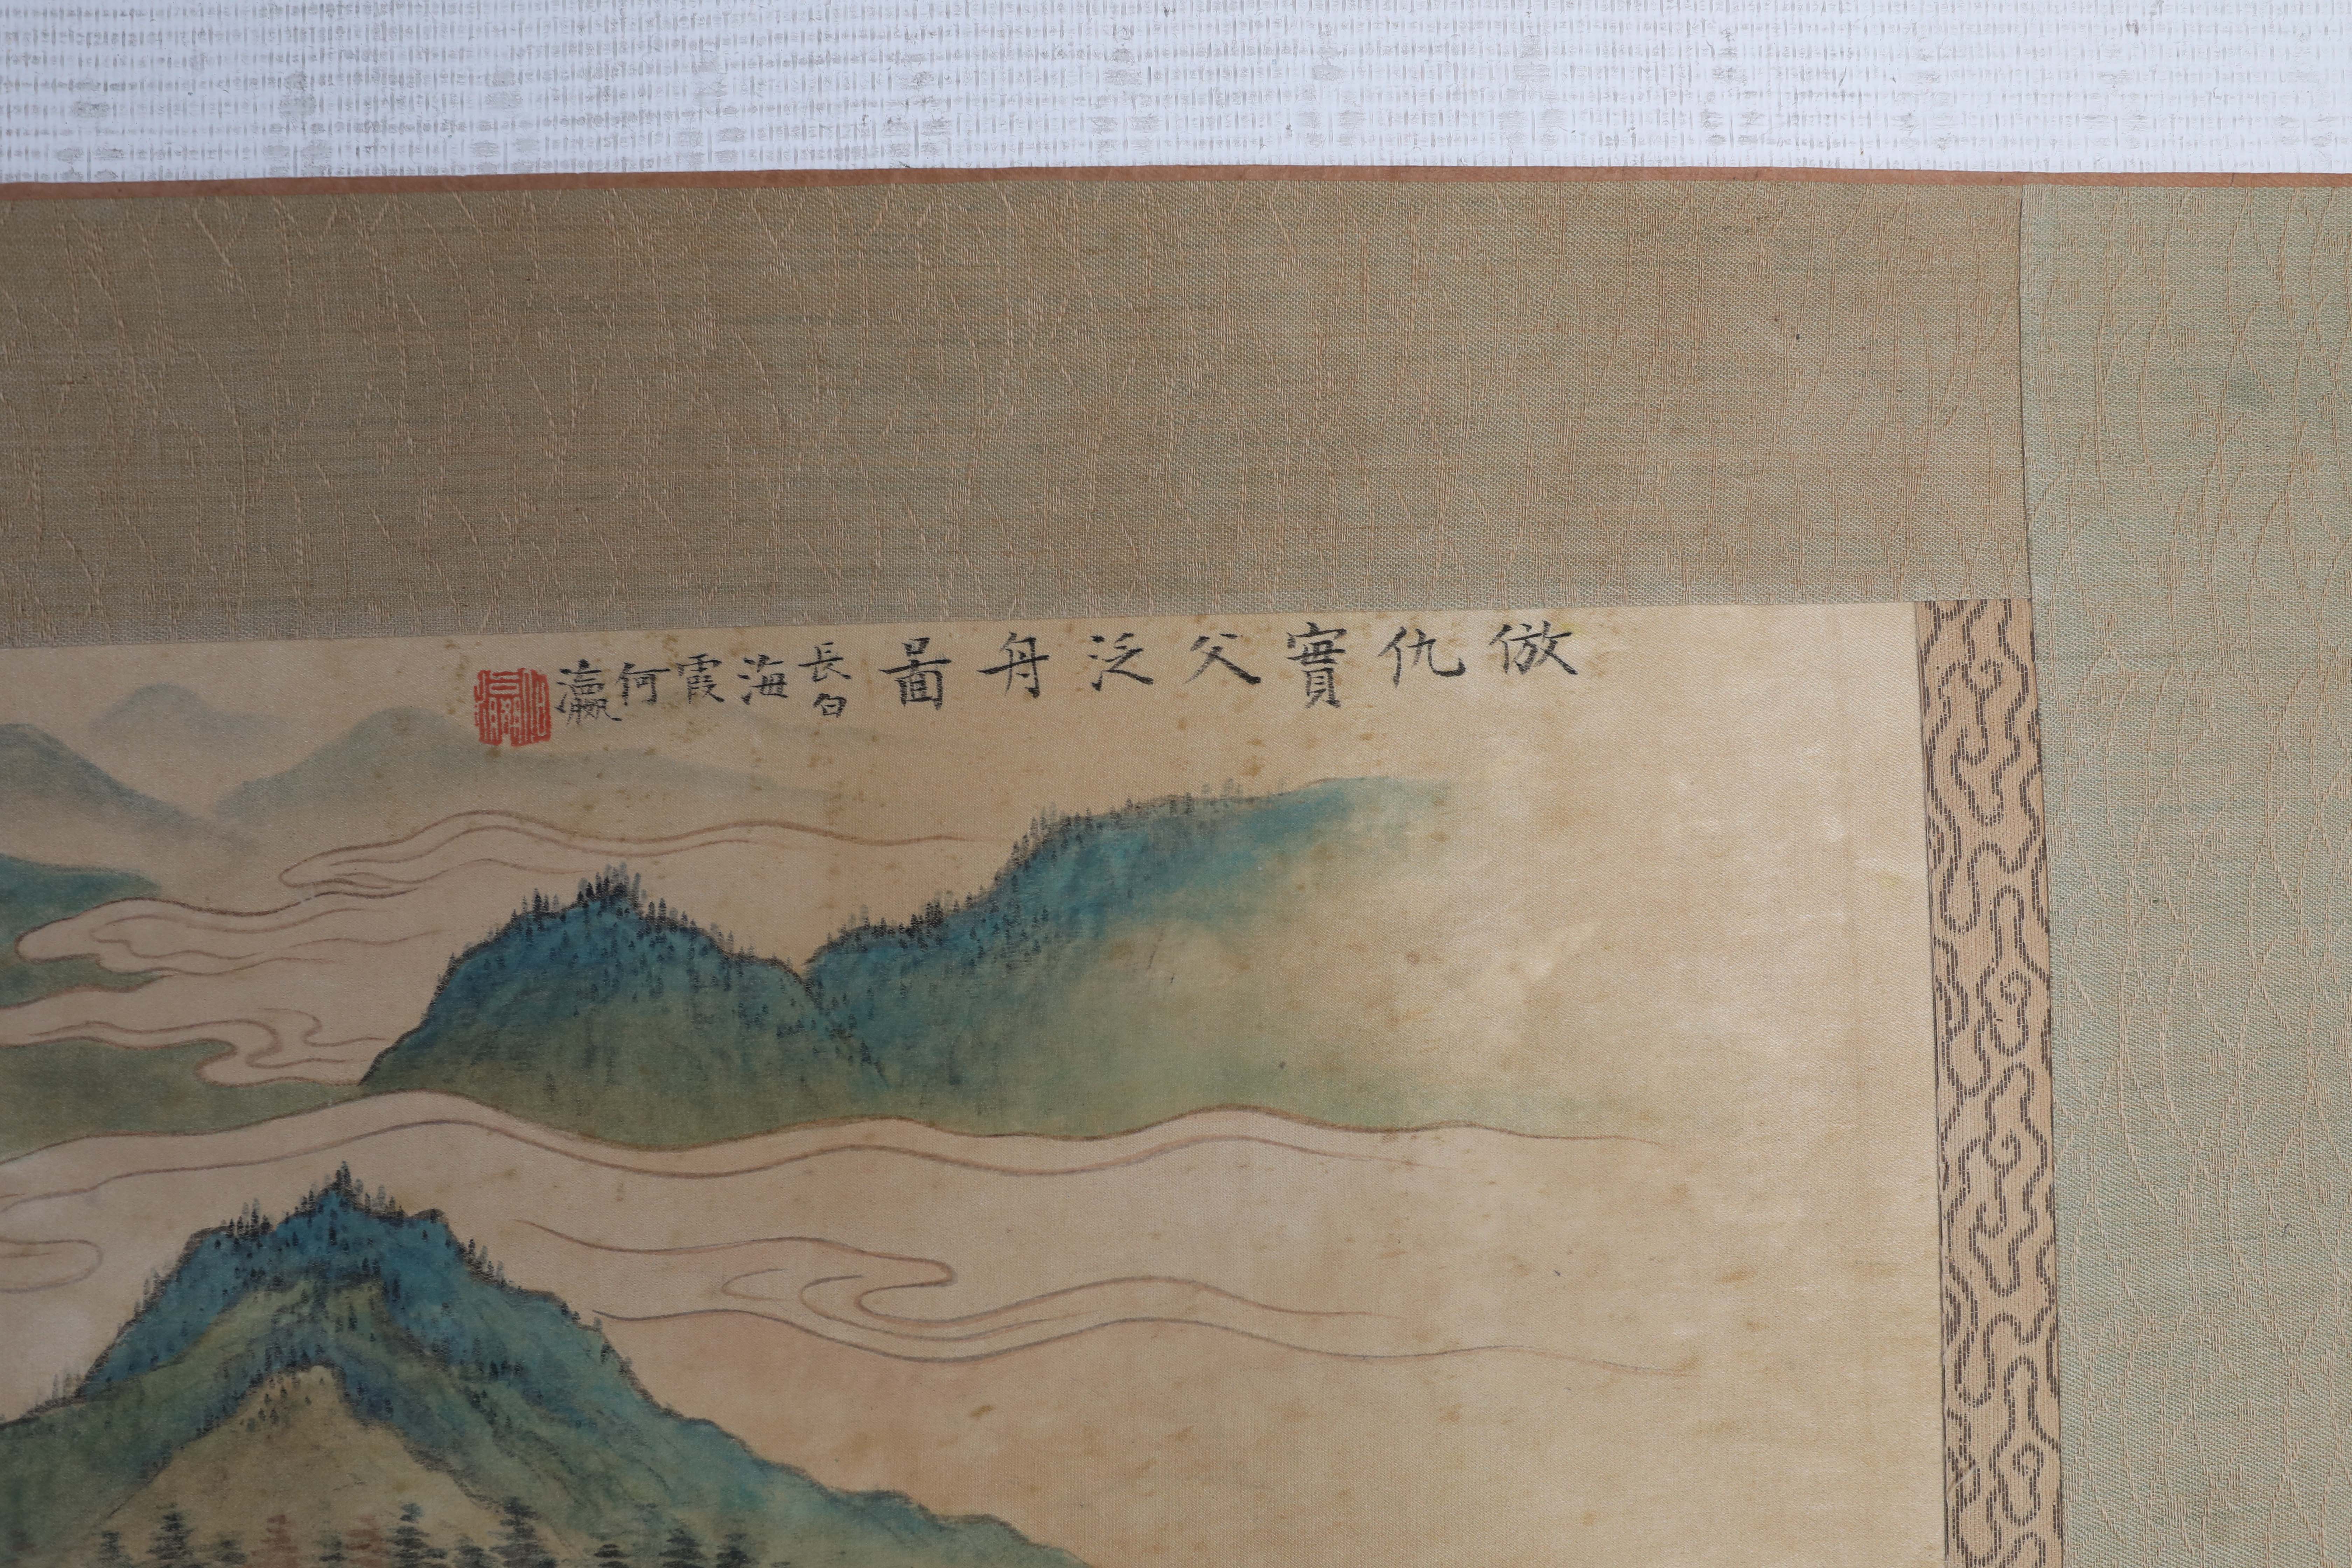 倣仇實父泛舟啚長白海霞何瀛